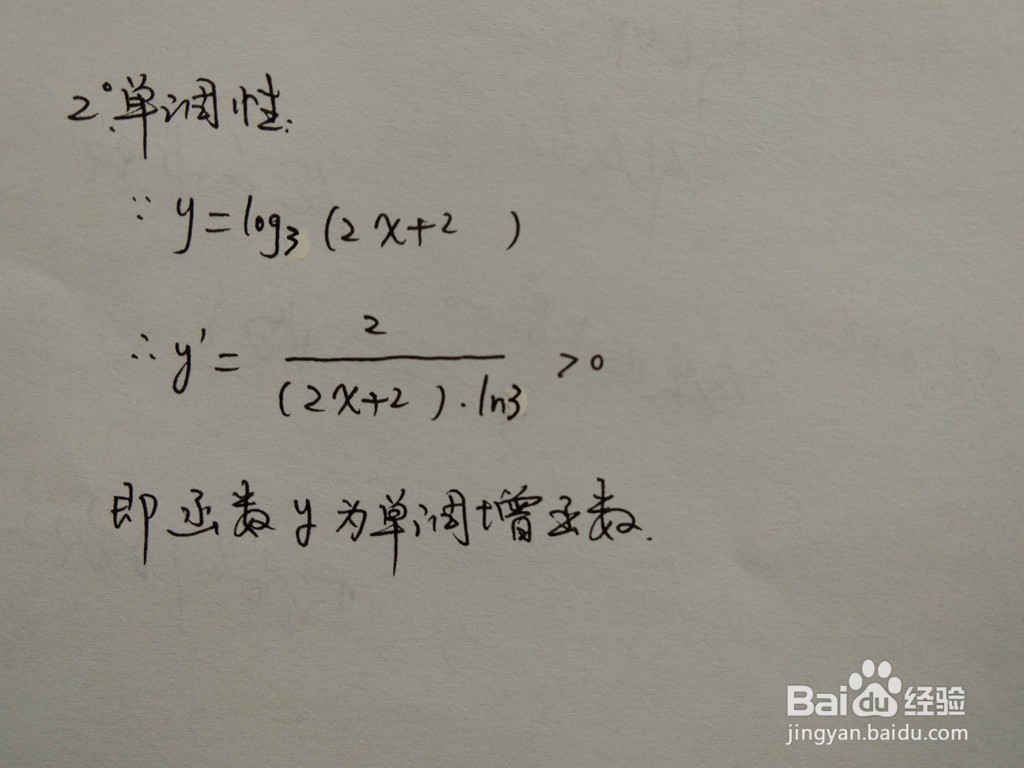 2°.单调性.
∵ y=log₃(2x+2 )
∴ y'= 2/((2x+2 )·ln3) >0
即函数y为单调增函数.
Baidu经验
jingyan.baidu.com